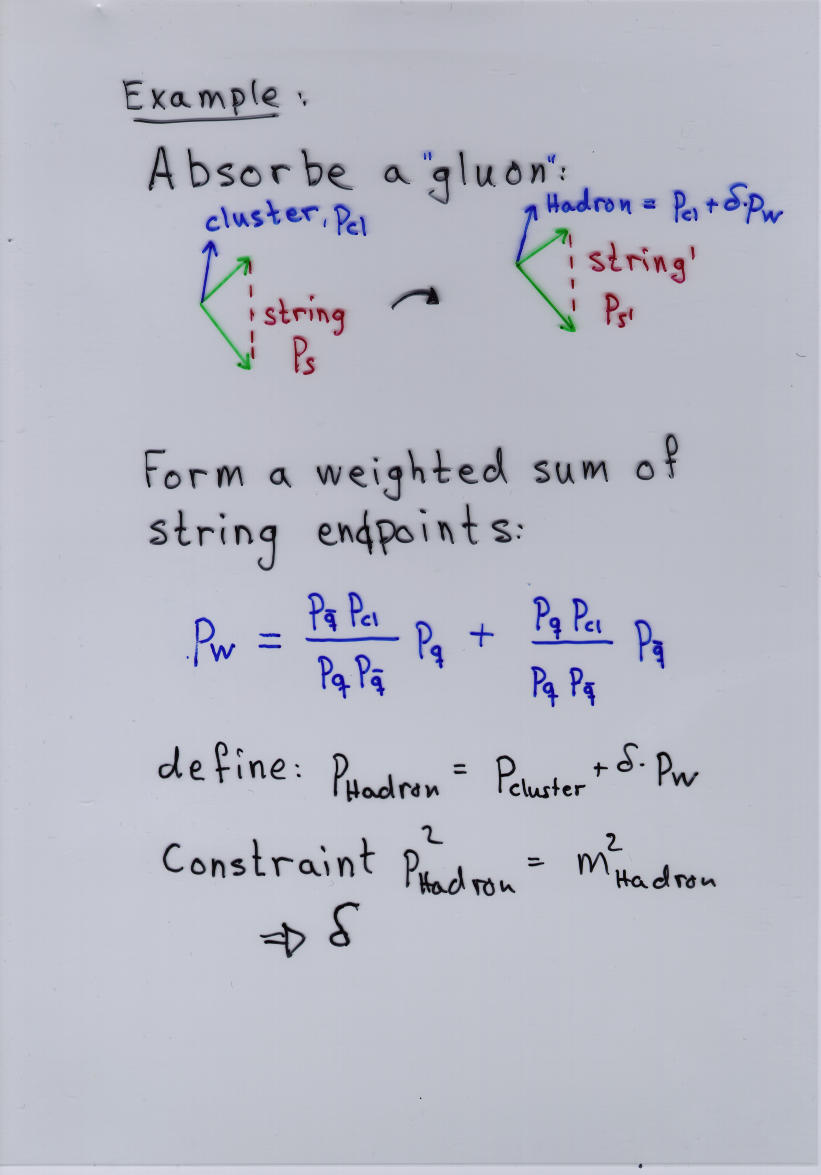 Example:
Absorbe a "gluon":
cluster, Pcl
string
Ps
Hadron = Pcl + δ·Pw
string'
Ps'
Form a weighted sum of
string endpoints:
Pw = (Pq̄ Pcl)/(Pq Pq̄) Pq + (Pq Pcl)/(Pq Pq̄) Pq̄
define: PHadron = Pcluster + δ· Pw
Constraint P²Hadron = m²Hadron
⇒ δ